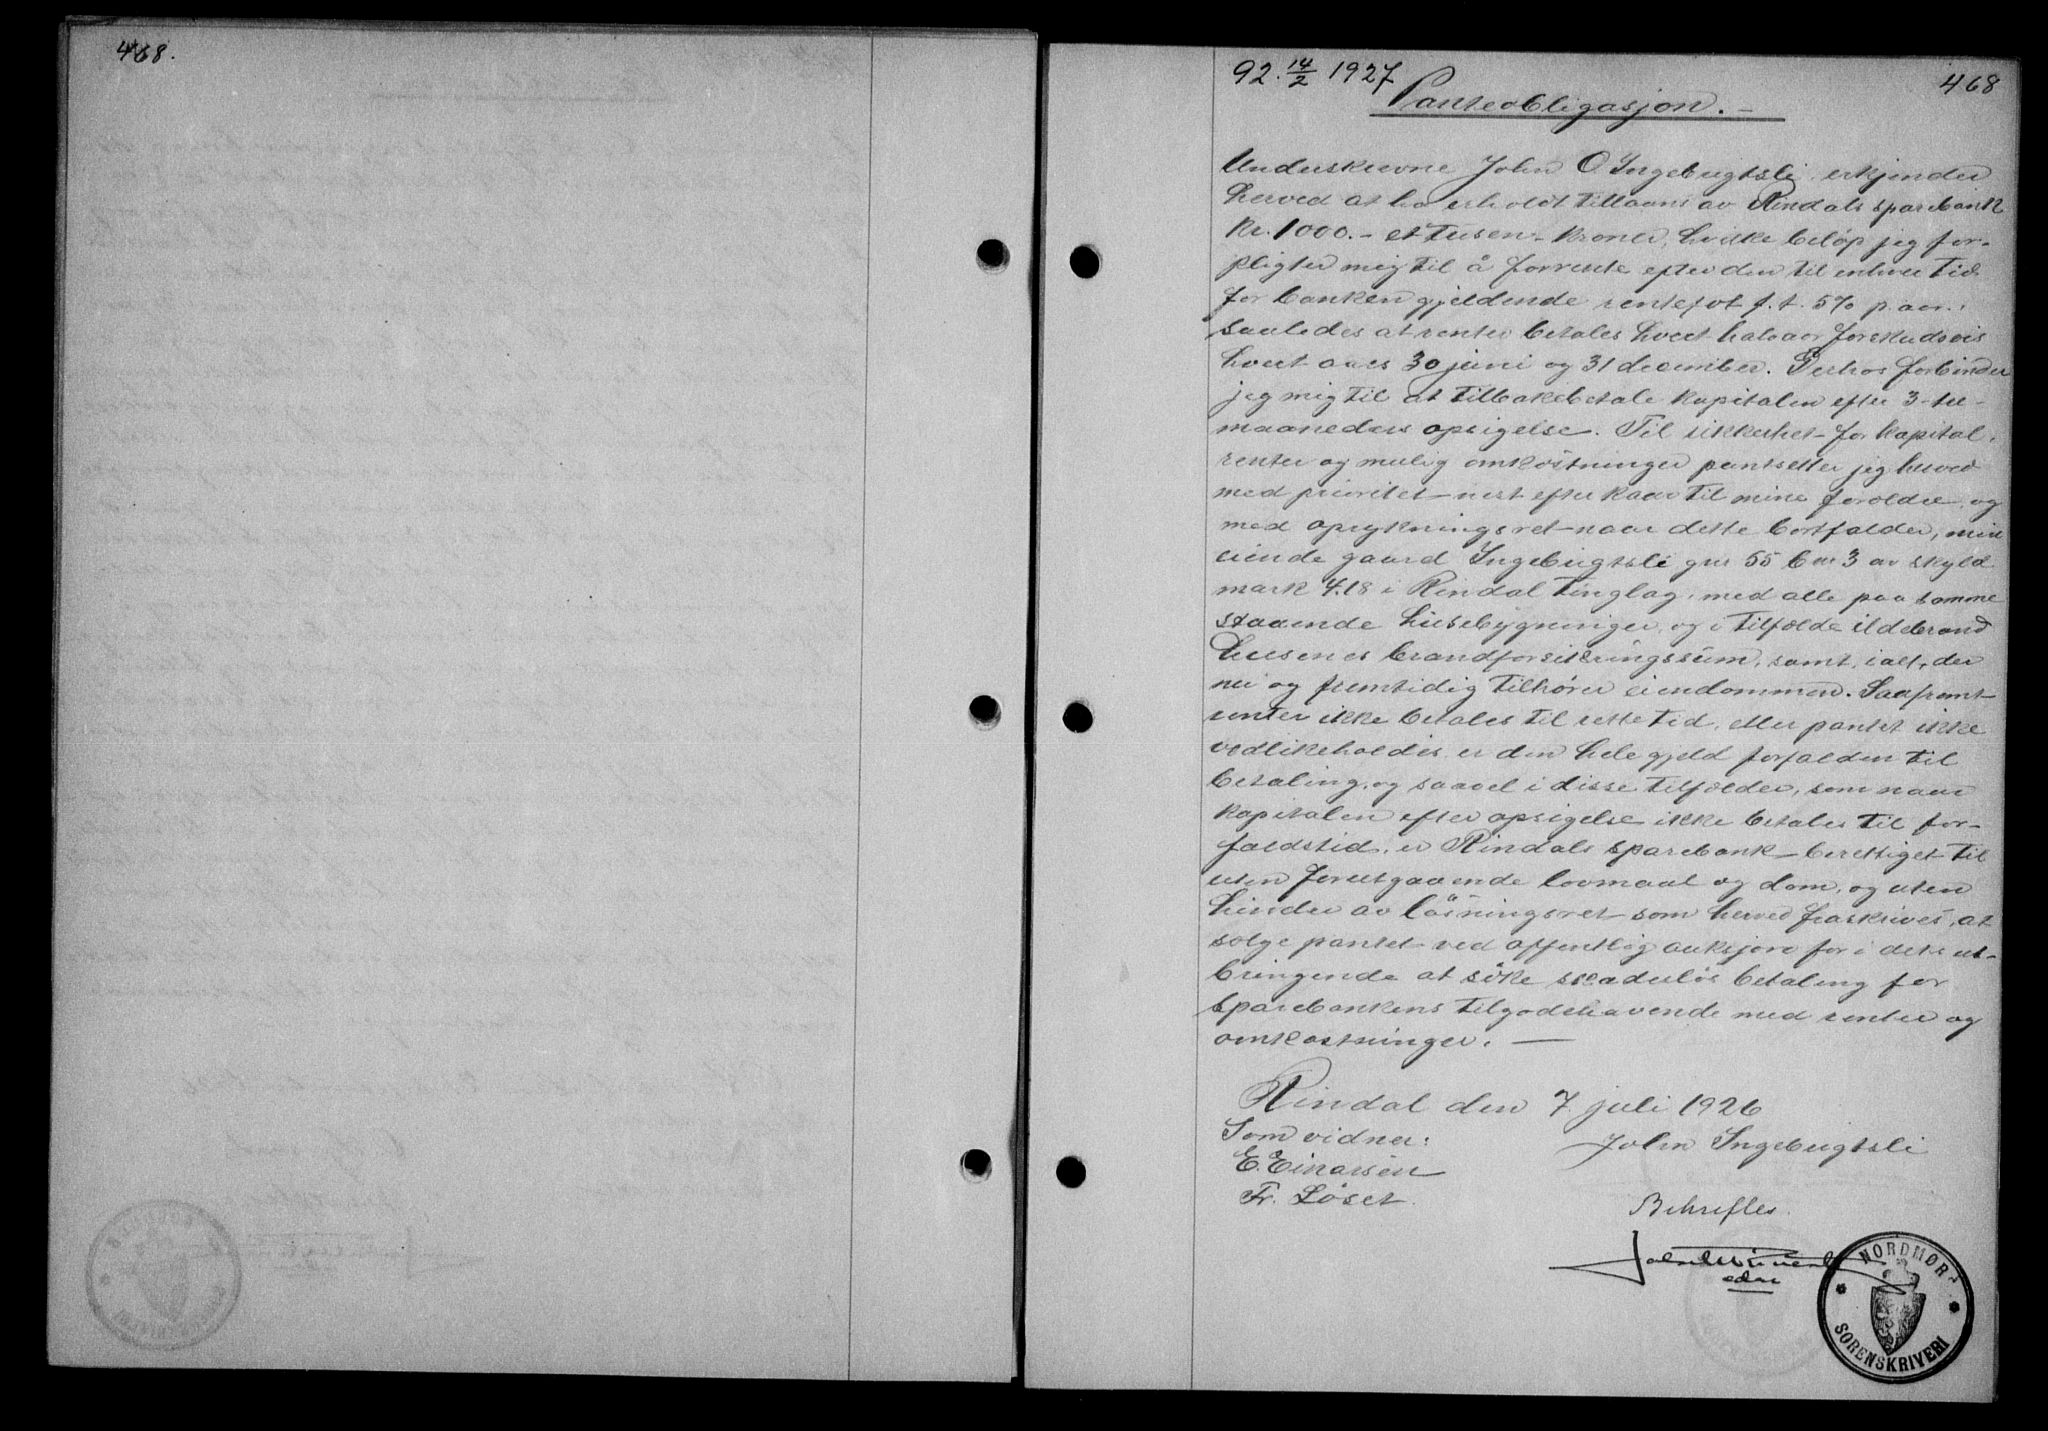 468.
92. 14/2 1927
468
Panteobligasjon. –
Underskrevne John O Ingebrigtsli, erkjender
herved at ha erholdt tillaans av Rindals sparebank
Kr. 1000.– et tusen – kroner, hvilke beløp jeg for-
pligter mig til å forrente efter den til enhver tid
for banken gjeldende rentefot f. t. 5% p. aar.,
saaledes at renter betales hvert halvaar forskudsvis
hvert aars 30 juni og 31 december. Derhos forbinder
jeg mig til at tilbakebetale kapitalen efter 3-tre-
maaneders opsigelse. Til sikkerhet for kapital,
renter og mulig omkostninger pantsetter jeg herved
med prioritet – nest efter kaar til mine foreldre, og
med oprykningsret – naar dette bortfalder, min
eiende gaard Ingebrigtsli gnr 55 bnr 3 av skyld
mark 4.18 i Rindal tinglag, med alle paa samme
staaende husebygninger, og i tilfælde ildebrand
husenes brandforsikringssum, samt, i alt, der
nu og fremtidig tilhører eiendommen. Saafremt
renter ikke betales til rette tid, eller pantet ikke
vedlikeholdes, er den hele gjeld forfalden til
betaling, og saavel i disse tilfælder, som naar
kapitalen efter opsigelse ikke betales til for-
faldstid, er Rindals sparebank – berettiget til
uten forutgaaende lovmaal og dom, og uten
hinder av løsningsret som herved fraskrives, at
selge pantet ved offentlig auksjon for i dets ut-
bringende at søke skadesløs betaling for
sparebankens tilgodehavende med renter og
omkostninger. —
Rindal den 7. juli 1926
Som vidner:
John Ingebrigtsli
E. Einarsen
Fr. Løset.
Bekreftes.
edsv
NORDMØR
SORENSKRIVERI